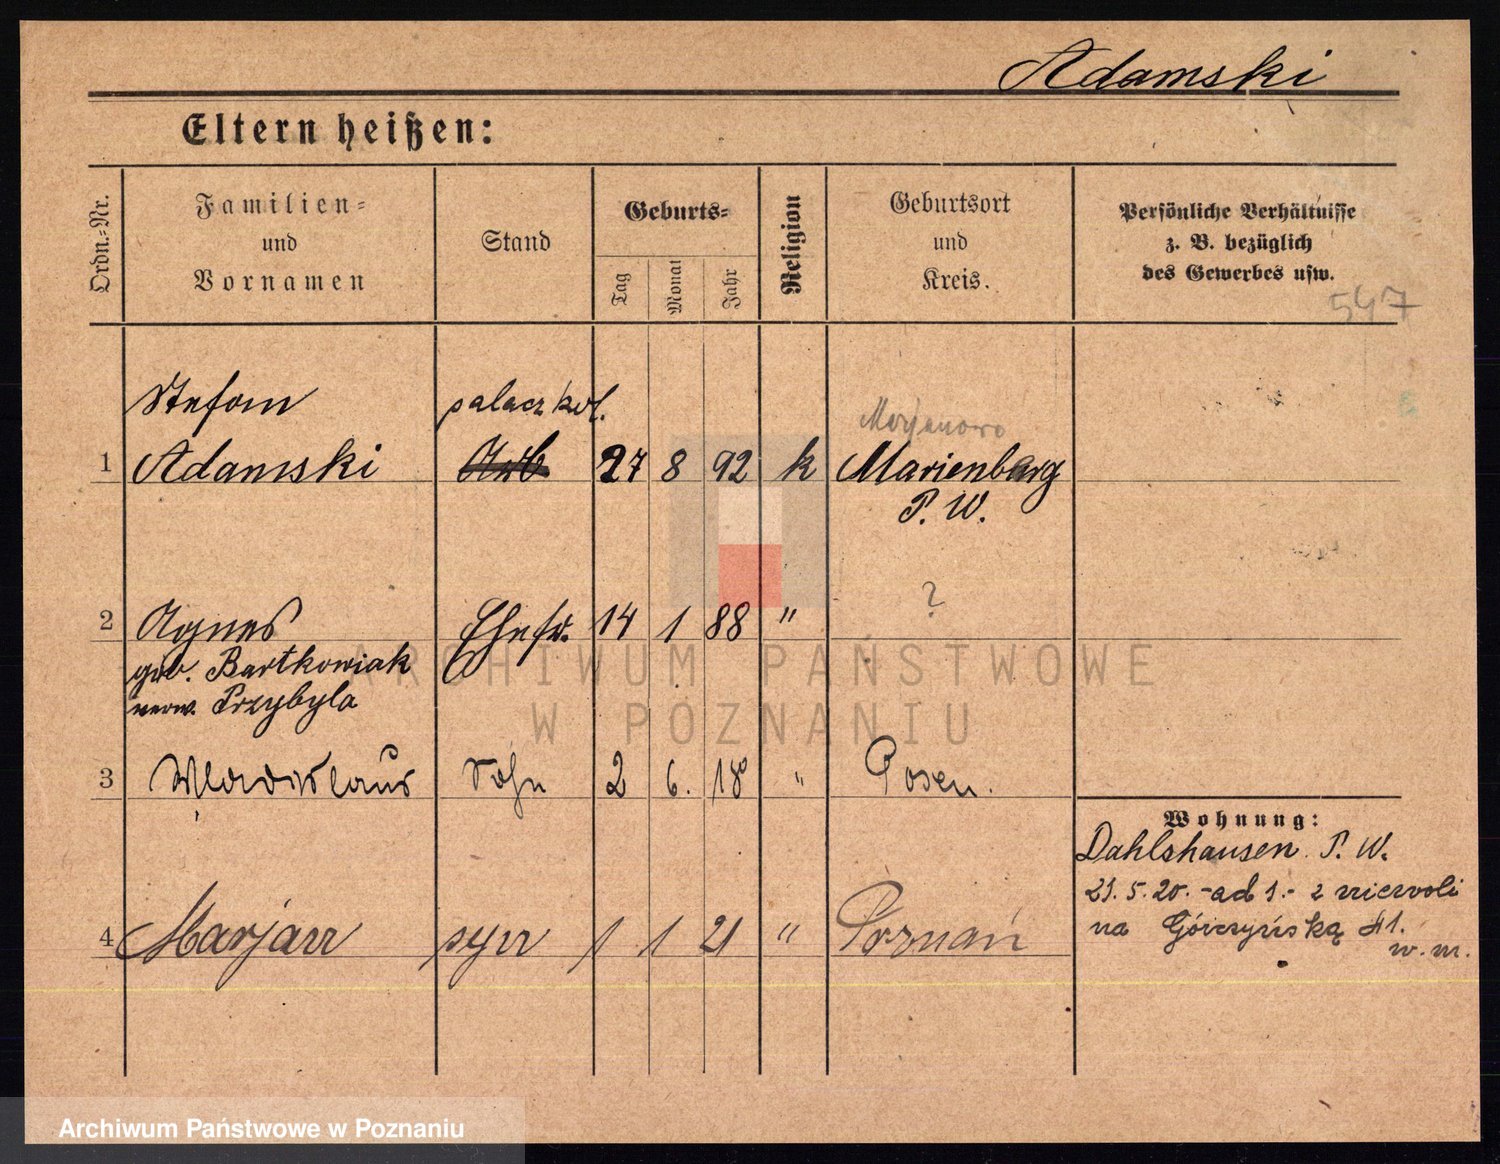 Adamski
Eltern heißen:
Ordn.-Nr.
Familien-
und
Vornamen
Stand
Geburts-
Tag
Monat
Jahr
Religion
Geburtsort
und
Kreis.
Persönliche Verhältnisse
z. B. bezüglich
des Gewerbes usw.
547
Stefan palacz kol.
Marjanowo
1 Adamski Arb 27 8 92 k Marienberg
P. W.
?
2 Agnes Ehefr. 14 1 88 "
geb. Bartkowiak
verw. Przybyla
3 Wladislaus Sohn 2 6. 18 " Posen.
Wohnung:
Dahlshausen P. W.
21.5.20. - ad 1.- z
na Górczyńską 41.
w. m.
4 Marjan syn 1 1 21 " Poznań
ARCHIWUM PAŃSTWOWE
W POZNANIU
Archiwum Państwowe w Poznaniu